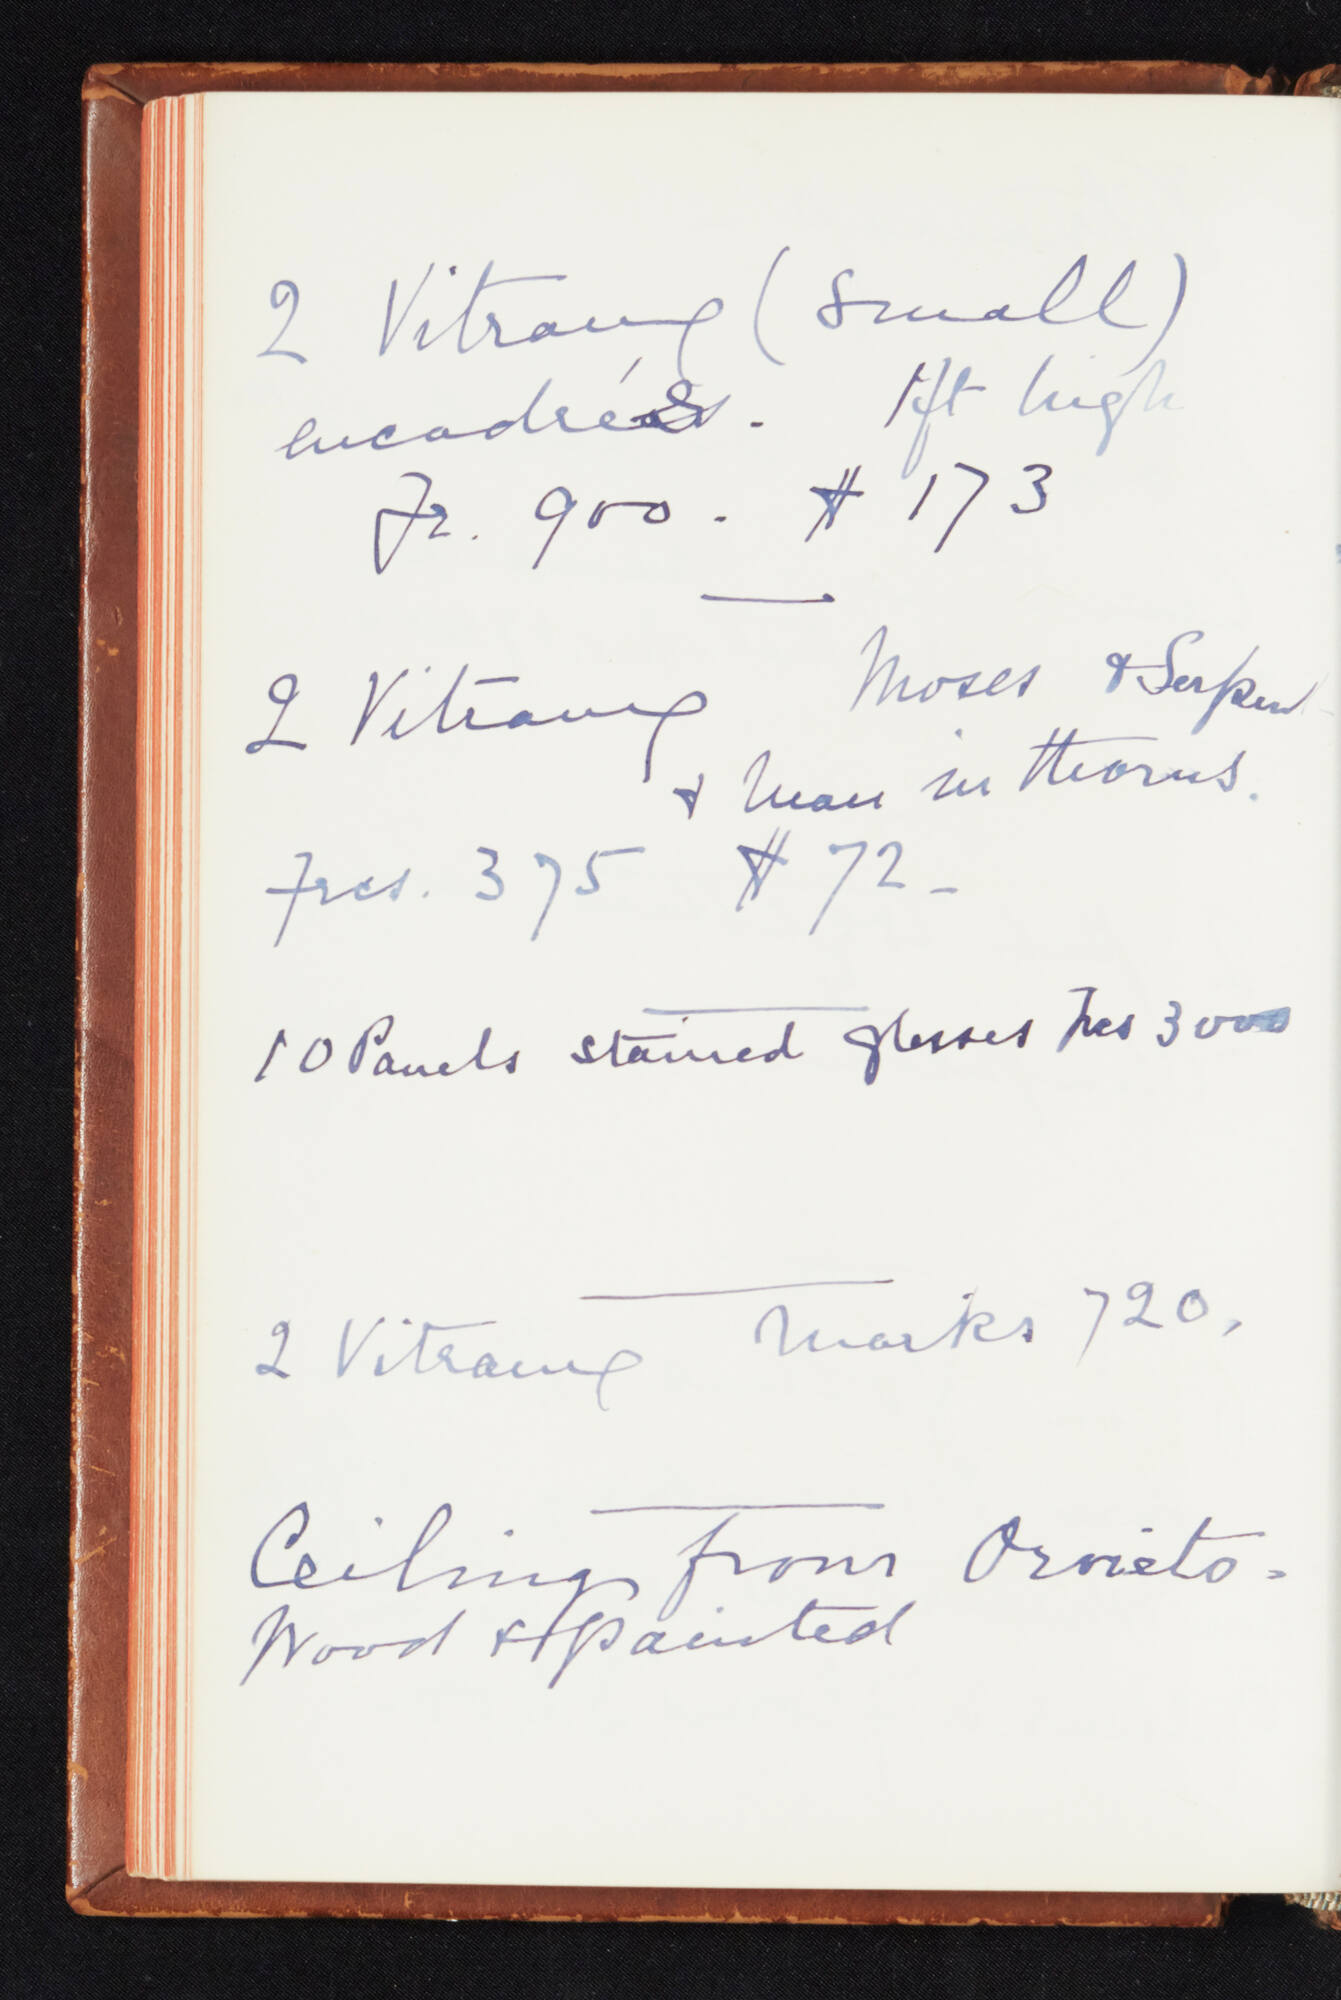 2 Vitraux (Small)
encadrés. 1ft high
Fr. 900. $ 173
2 Vitraux Moses & Serpent
& Man in thorns.
Frcs. 375 $ 72_
10 Panels stained glasses Frcs 3000
2 Vitraux Marks 720,
Ceiling from Orvieto.
Wood & painted